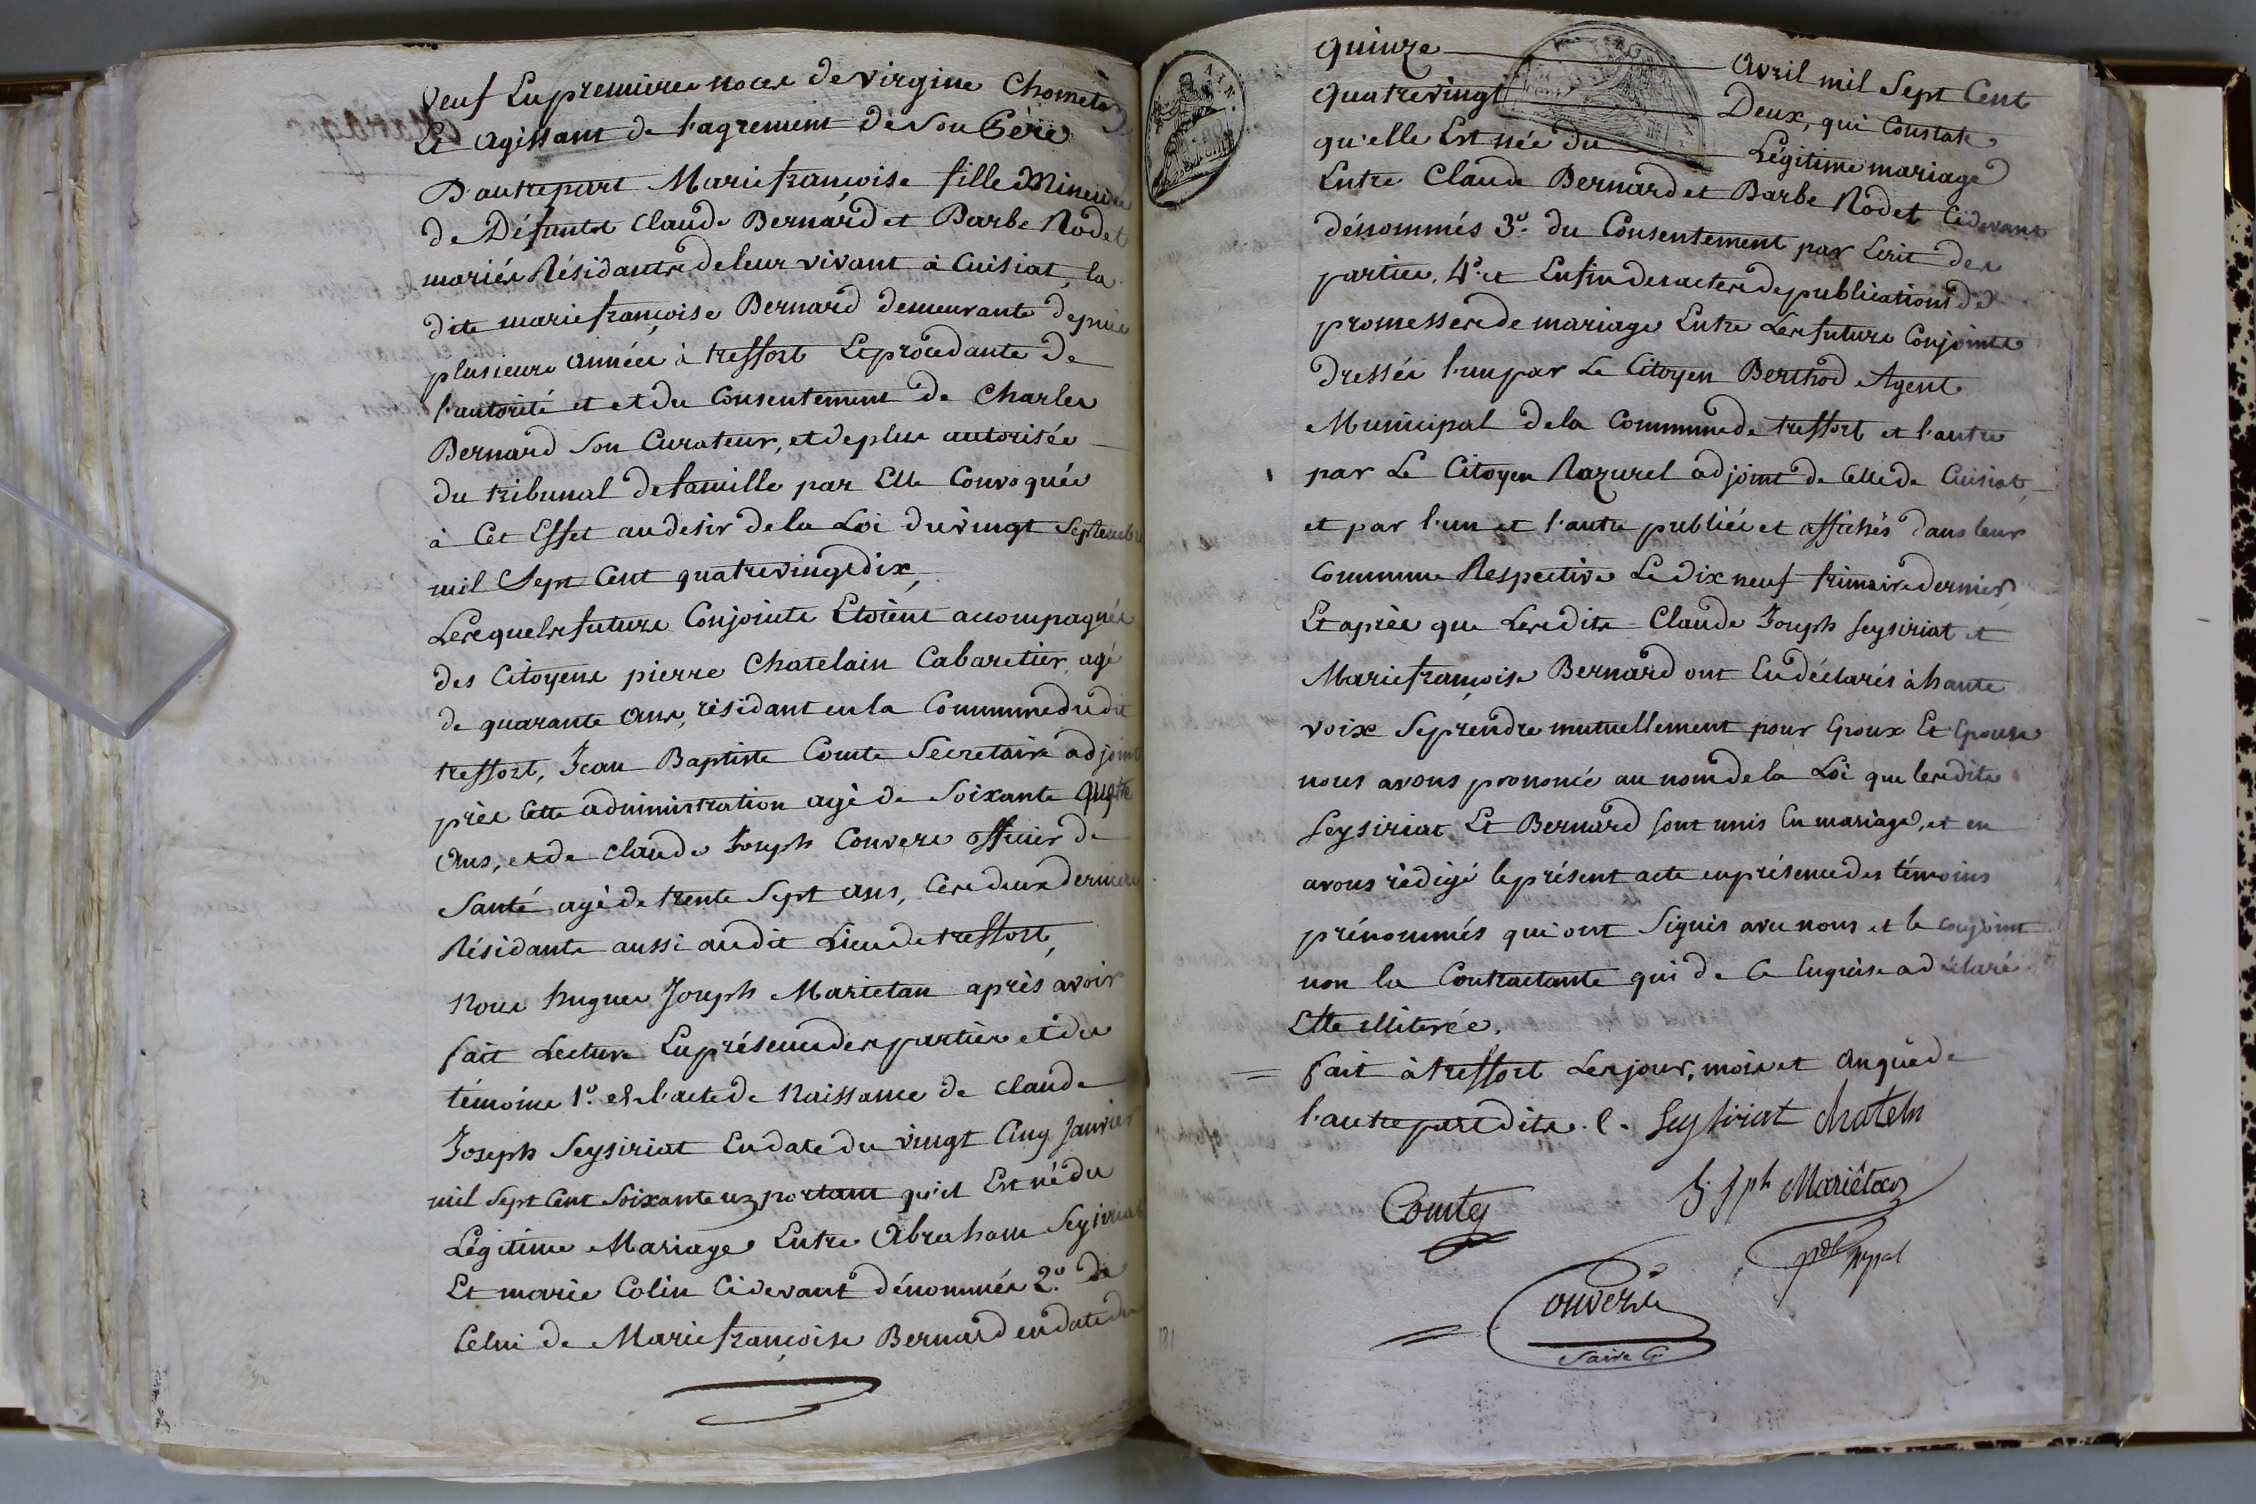 Veuf En premieres noces de virgine Chometo
Et agissant de l'agrement de Son Pére
D'autre part Marie françoise fille Mineure
de Défunts Claude Bernard et Barbe Nodet
mariés Résidants de leur vivant à Cuisiat, la
dite marie françoise Bernard demeurante depuis
plusieurs années à treffort Et procedante de
l'autorité et et du Consentement de Charles
Bernard Son Curateur, et de plus autorisée
du tribunal de famille par Elle Convoquée
à Cet Effet au desir de la Loi du vingt Septembre
mil Sept Cent quatre vingt dix,
Lesquels futurs Conjoints Etoient accompagnés
des Citoyens pierre Chatelain Cabaretier, agé
de quarante ans, résidant en la Commune du dit
treffort, Jean Baptiste Comte Secretaire adjoint
près Cette administration agé de Soixante quatre
Ans, et de Claude Joseph Convers officier de
Santé agé de trente Sept ans, Ces deux derniers
Résidants aussi audit Lieu de treffort,
Nous hugues Joseph Marietan après avoir
fait Lecture En présence des parties et des
témoins 1.º de l'acte de Naissance de Claude
Joseph Seysiriat En date du vingt Cinq Janvier
mil Sept Cent Soixante un portant qu'il Est né du
Légitime Mariage Entre Abraham Seysiriat
Et marie Colin Cidevant dénommés 2.º de
Celui de Marie françoise Bernard en date du
Quinze Avril mil Sept Cent
Quatrevingt Deux, qui Constate
qu'elle Est née du Légitime mariage
Entre Claude Bernard et Barbe Nodet Cidevant
dénommés 3.º du Consentement par Ecrit des
parties, 4.º et Enfin des actes de publications de
promesses de mariage Entre Les futurs Conjoints
dressés l'un par Le Citoyen Berthod Agent
Municipal de la Commune de treffort et l'autre
par Le Citoyen Nazurel adjoint de Celle de Cuisiat,
et par l'un et l'autre publiés et affichés dans leur
Commune Respective Le dix neuf frimaire dernier,
Et après que Lesdits Claude Joseph Seysiriat et
Marie françoise Bernard ont Eu déclarés à haute
voix Se prendre mutuellement pour Epoux Et Epouse
nous avons prononcé au nom de la Loi que lesdits
Seysiriat Et Bernard Sont unis En mariage, et en
avons rédigé le présent acte en présence des témoins
prénommés qui ont Signés avec nous et le conjoint
non la Contractante qui de Ce Enquise a déclaré
Etre illiterée.
fait à treffort Les jour, mois et an que de
l'autre part dits. C. Seysiriat Chateln
Comte h. Jph Mariétan
pdt
Convers